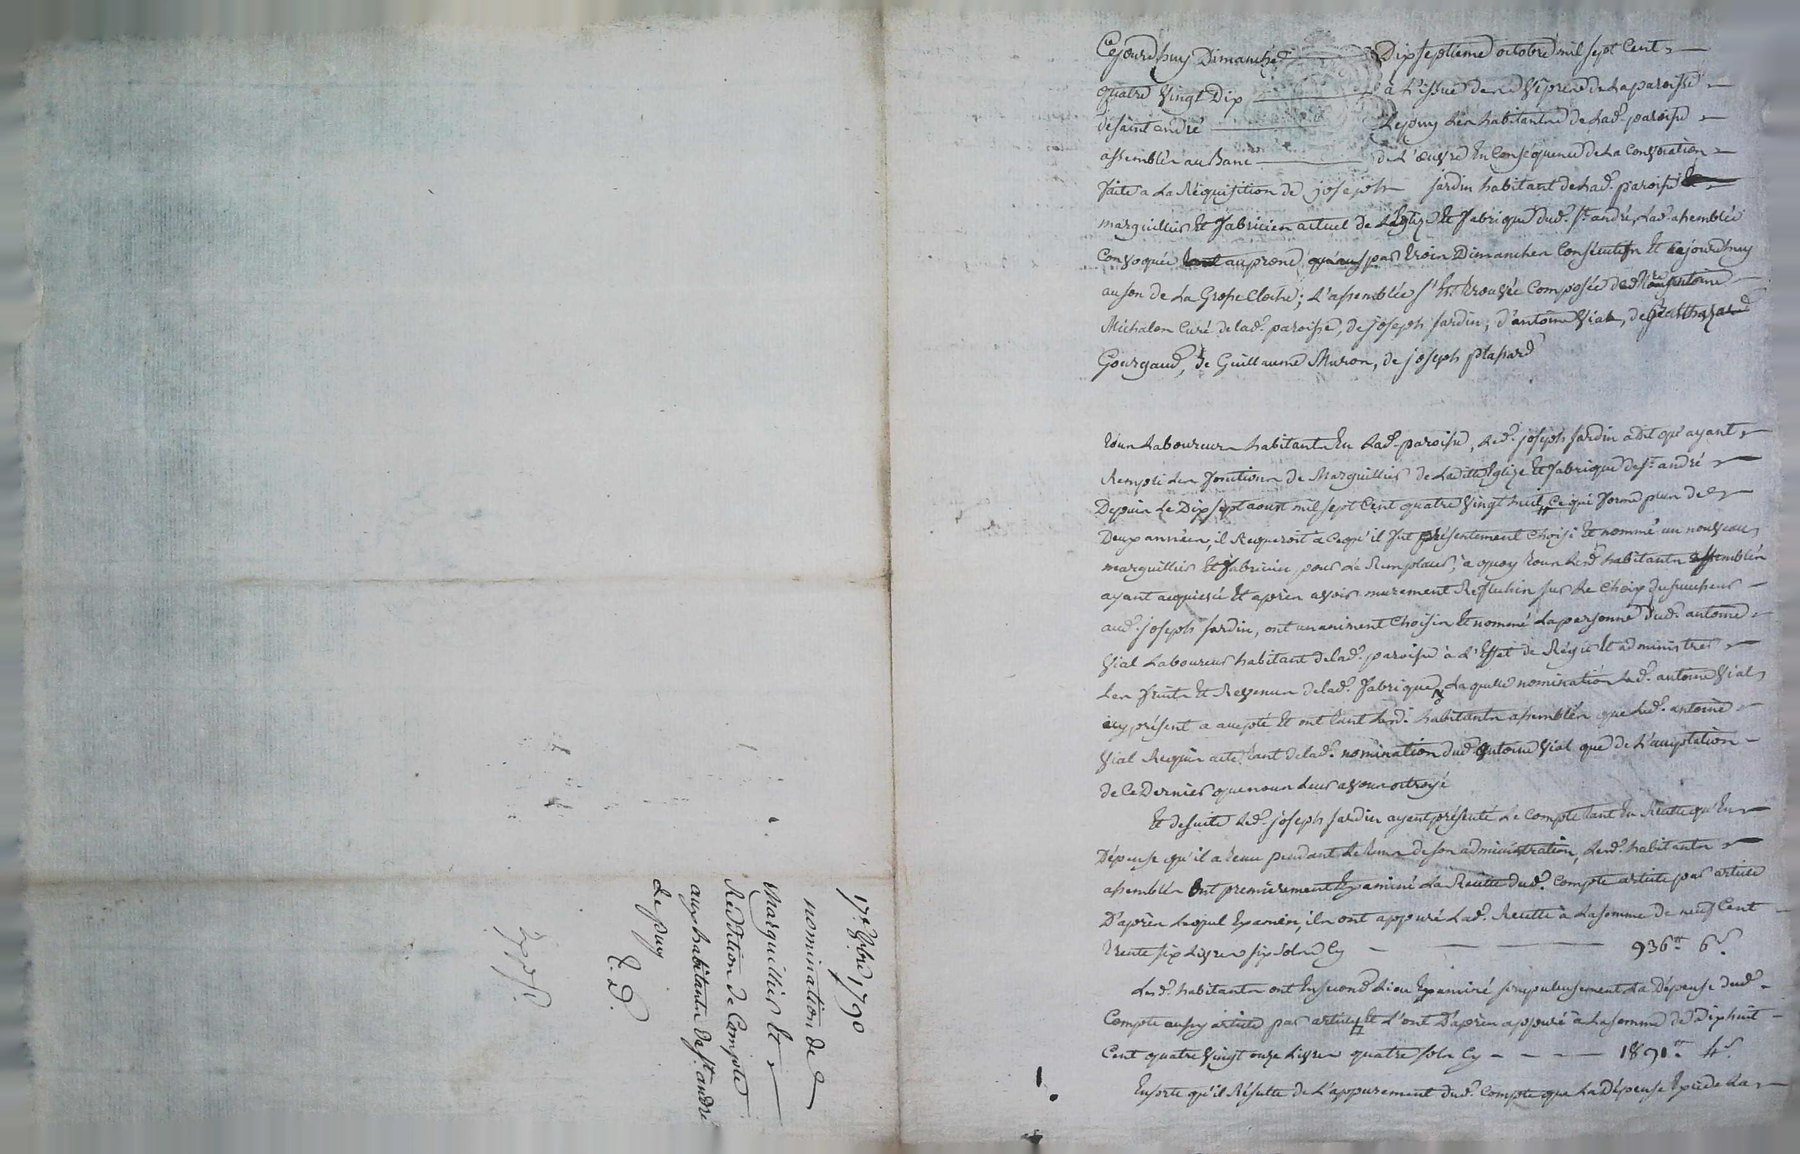 Cejourd'huy Dimanche Dix septieme octobre mil sept Cent
quatre vingt Dix à L'issue des vêpres de La paroisse
de saint andré Lepuy Les habitants de Lad. paroisse
assemblés au Banc de L'œuvre En Conséquence de La Convocation
faite a La Réquisition de joseph jardin habitant de Lad. paroisse
marguillier Et fabricien actuel de L'Eglize Et fabrique dud. st. andré, Lad. assemblée
Convoquée au prone par trois Dimanches Consécutifs Et cejourd'huy
au son de La Grosse Cloche; L'assemblée s'Est trouvée Composée de antoine
Michalon Curé de lad. paroisse, de joseph jardin, d'antoine Vial, de Balthazard
Gourgaud, de Guillaume Muron, de joseph plassard
tous Laboureurs habitants En Lad. paroisse, Led. joseph jardin a dit qu'ayant
Rempli Les fonctions de Marguillier de Laditte Eglize Et fabrique de st. andré
Depuis Le Dix sept aoust mil sept Cent quatre vingt huit, ce qui forme plus de
Deux années, il Requeroit a Ce qu'il fut présentement Choisi Et nommé un nouveau
marguillier Et fabricien pour Le Remplacer, à quoy tous Lesd. habitants assemblés
ayant acquiescé Et après avoir murement Reflechis sur Le Choix du successeur
aud. joseph jardin, ont unaniment Choisis Et nommé La personne dud. antoine
Vial Laboureur habitant de lad. paroisse à L'Effet de Régir Et administrer
Les fruits Et Revenus de lad. fabrique, Laquelle nomination Led. antoine Vial
icy présent a accepté Et ont tant Lesd. habitants assemblés que Led. antoine
Vial Requis acte, tant de lad. nomination dud. antoine Vial que de L'acceptation
de Ce Dernier que nous Leur avons octroyé
Et de suite Led. joseph jardin ayant présenté Le Compte tant En Recette qu'En
Dépense qu'il a tenu pendant Le tems de son administration, Lesd. habitants
assemblés Ont premierement Examiné La Recette dud. Compte article par article
D'après Lequel Examen, ils ont appuré Lad. Recette à La somme de neuf Cent
trente six Livres six sols Cy 936 tt 6 s.
Lesd. habitants ont En second Lieu Examiné scrupuleusement La Dépense dud.
Compte aussy article par article Et L'ont D'après appuré à La somme de Dix huit
Cent quatre vingt onze Livres quatre sols Cy 1891 tt 4 s.
Ensorte qu'il Résulte de L'appurement dud. Compte que La dépense Excede La
17e. 8bre 1790
nomination de
Marguillier Et
Reddition de Compte
aux habitants de St. andré
Le puy
E. D.